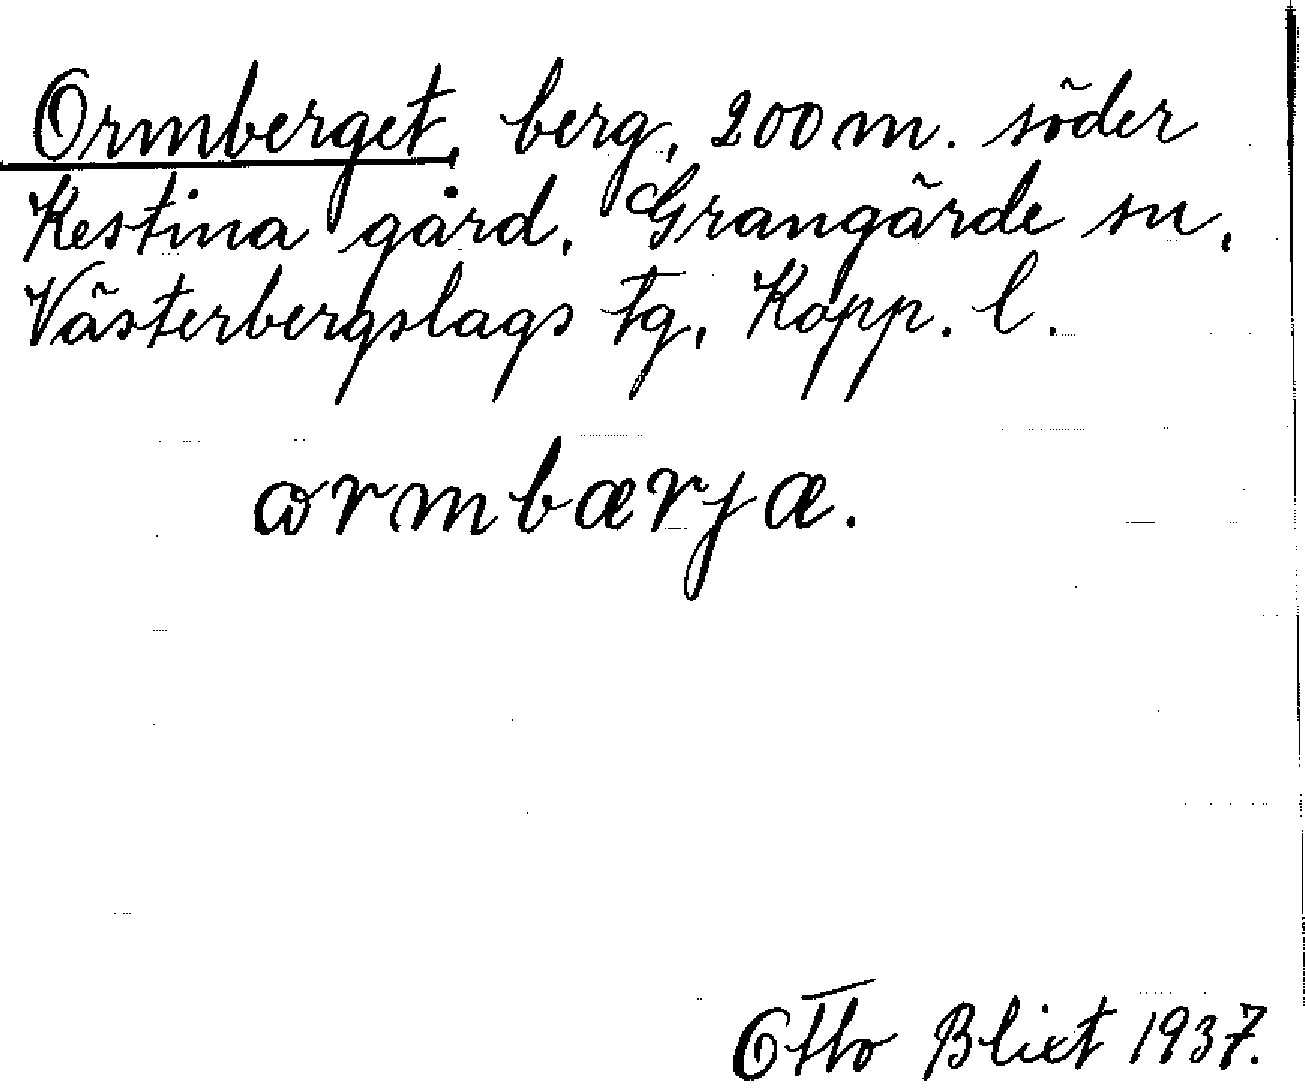 Ormberget, berg, 200 m. söder
Kestina gård, Grangärde sn,
Västerbergslags tg, Kopp. l.
ormbærjæ.
Otto Blixt 1937.